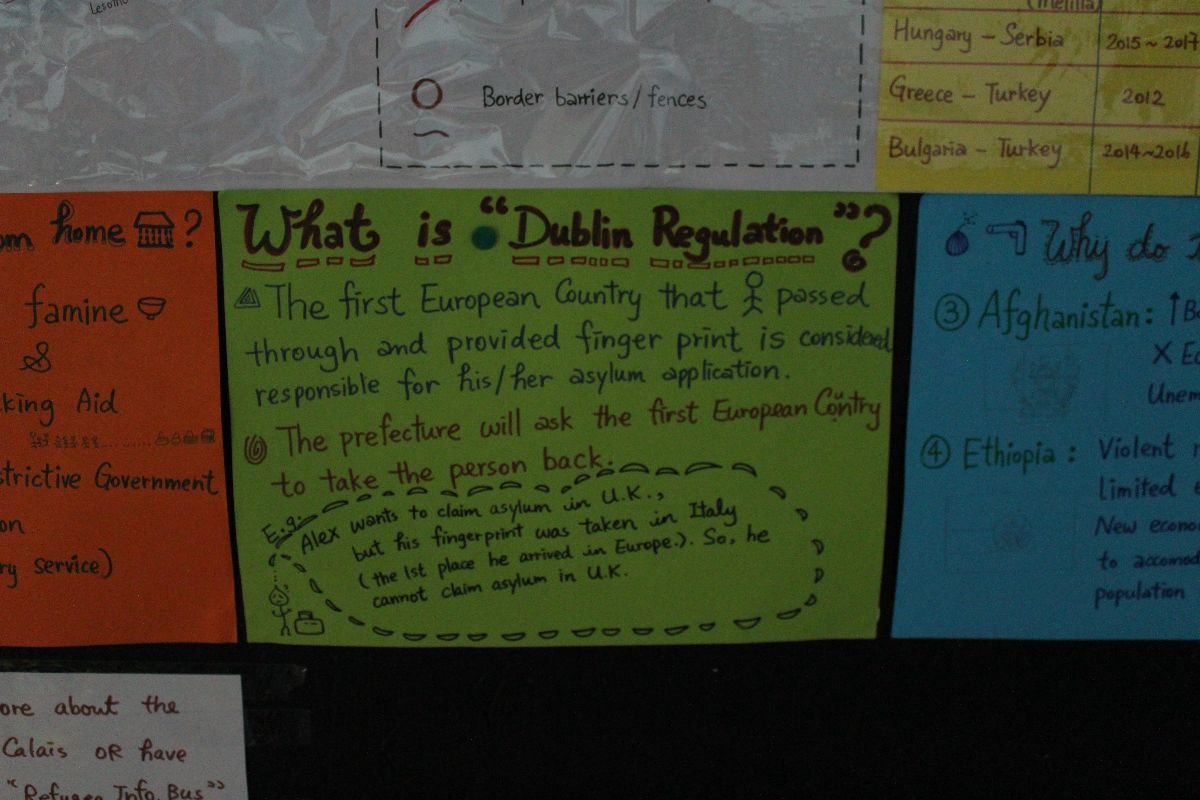 Lesotho
Border barriers/fences
(Melilla)
Hungary - Serbia 2015 ~ 2017
Greece - Turkey 2012
Bulgaria - Turkey 2014~2016
om home ?
famine
&
king Aid
strictive Government
on
ry service)
What is "Dublin Regulation"?
The first European Country that passed
through and provided finger print is considered
responsible for his/her asylum application.
The prefecture will ask the first European Contry
to take the person back.
E.g.
Alex wants to claim asylum in U.K.,
but his fingerprint was taken in Italy
(the 1st place he arrived in Europe.). So, he
cannot claim asylum in U.K.
Why do
③ Afghanistan: ↑
X
Unem
④ Ethiopia: Violent
limited
New econo
to accomod
population
ore about the
Calais OR have
"Refugee Info Bus"